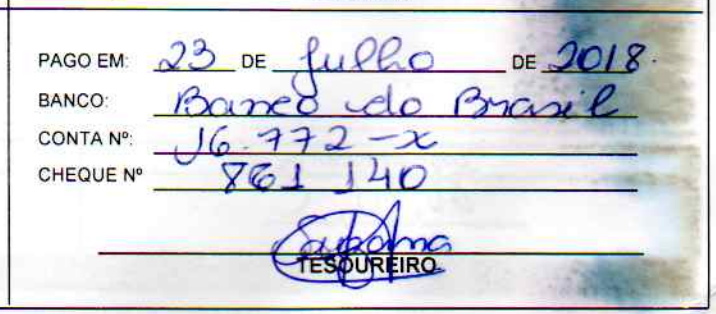 PAGO EM: 23 DE Julho DE 2018.
BANCO: Banco do Brasil
CONTA Nº: 16.772-x
CHEQUE Nº 861 140
TESOUREIRO